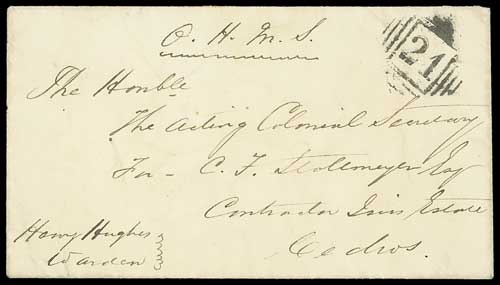 O. H. M. S.
21
The Honble
The Acting Colonial Secretary
For - C. F. Stollmeyer Esq
Contractor Isis Estate
Cedros.
Harry Hughes
Warden